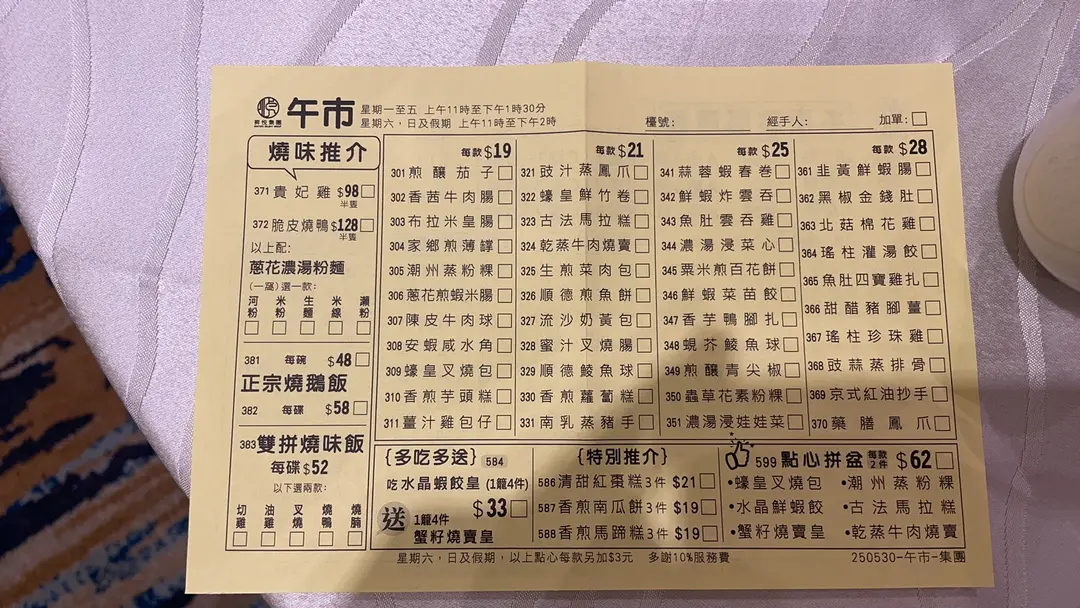 午市
星期一至五 上午11時至下午1時30分
星期六，日及假期 上午11時至下午2時
檯號：
經手人：
加單：
燒味推介
371 貴妃雞 $98
半隻
372 脆皮燒鴨 $128
半隻
以上配：
蔥花濃湯粉麵
(一窩)選一款：
河粉 米粉 生麵 米線 瀨粉
381 每碗 $48
正宗燒鵝飯
382 每碟 $58
383 雙拼燒味飯
每碟 $52
以下選兩款：
切雞 油雞 叉燒 燒鴨 燒腩
每款 $19
301 煎釀茄子
302 香茜牛肉腸
303 布拉米皇腸
304 家鄉煎薄罉
305 潮州蒸粉粿
306 蔥花煎蝦米腸
307 陳皮牛肉球
308 安蝦咸水角
309 蠔皇叉燒包
310 香煎芋頭糕
311 薑汁雞包仔
每款 $21
321 豉汁蒸鳳爪
322 蠔皇鮮竹卷
323 古法馬拉糕
324 乾蒸牛肉燒賣
325 生煎菜肉包
326 順德煎魚餅
327 流沙奶黃包
328 蜜汁叉燒腸
329 順德鯪魚球
330 香煎蘿蔔糕
331 南乳蒸豬手
每款 $25
341 蒜蓉蝦春卷
342 鮮蝦炸雲吞
343 魚肚雲吞雞
344 濃湯浸菜心
345 粟米煎百花餅
346 鮮蝦菜苗餃
347 香芋鴨腳扎
348 蜆芥鯪魚球
349 煎釀青尖椒
350 蟲草花素粉粿
351 濃湯浸娃娃菜
每款 $28
361 韭黃鮮蝦腸
362 黑椒金錢肚
363 北菇棉花雞
364 瑤柱灌湯餃
365 魚肚四寶雞扎
366 甜醋豬腳薑
367 瑤柱珍珠雞
368 豉蒜蒸排骨
369 京式紅油抄手
370 藥膳鳳爪
{多吃多送} 584
吃水晶蝦餃皇 (1籠4件)
$33
送 1籠4件
蟹籽燒賣皇
{特別推介}
586 清甜紅棗糕 3件 $21
587 香煎南瓜餅 3件 $19
588 香煎馬蹄糕 3件 $19
599 點心拼盆 每款2件 $62
•蠔皇叉燒包 •潮州蒸粉粿
•水晶鮮蝦餃 •古法馬拉糕
•蟹籽燒賣皇 •乾蒸牛肉燒賣
星期六，日及假期，以上點心每款另加$3元 多謝10%服務費
250530-午市-集團